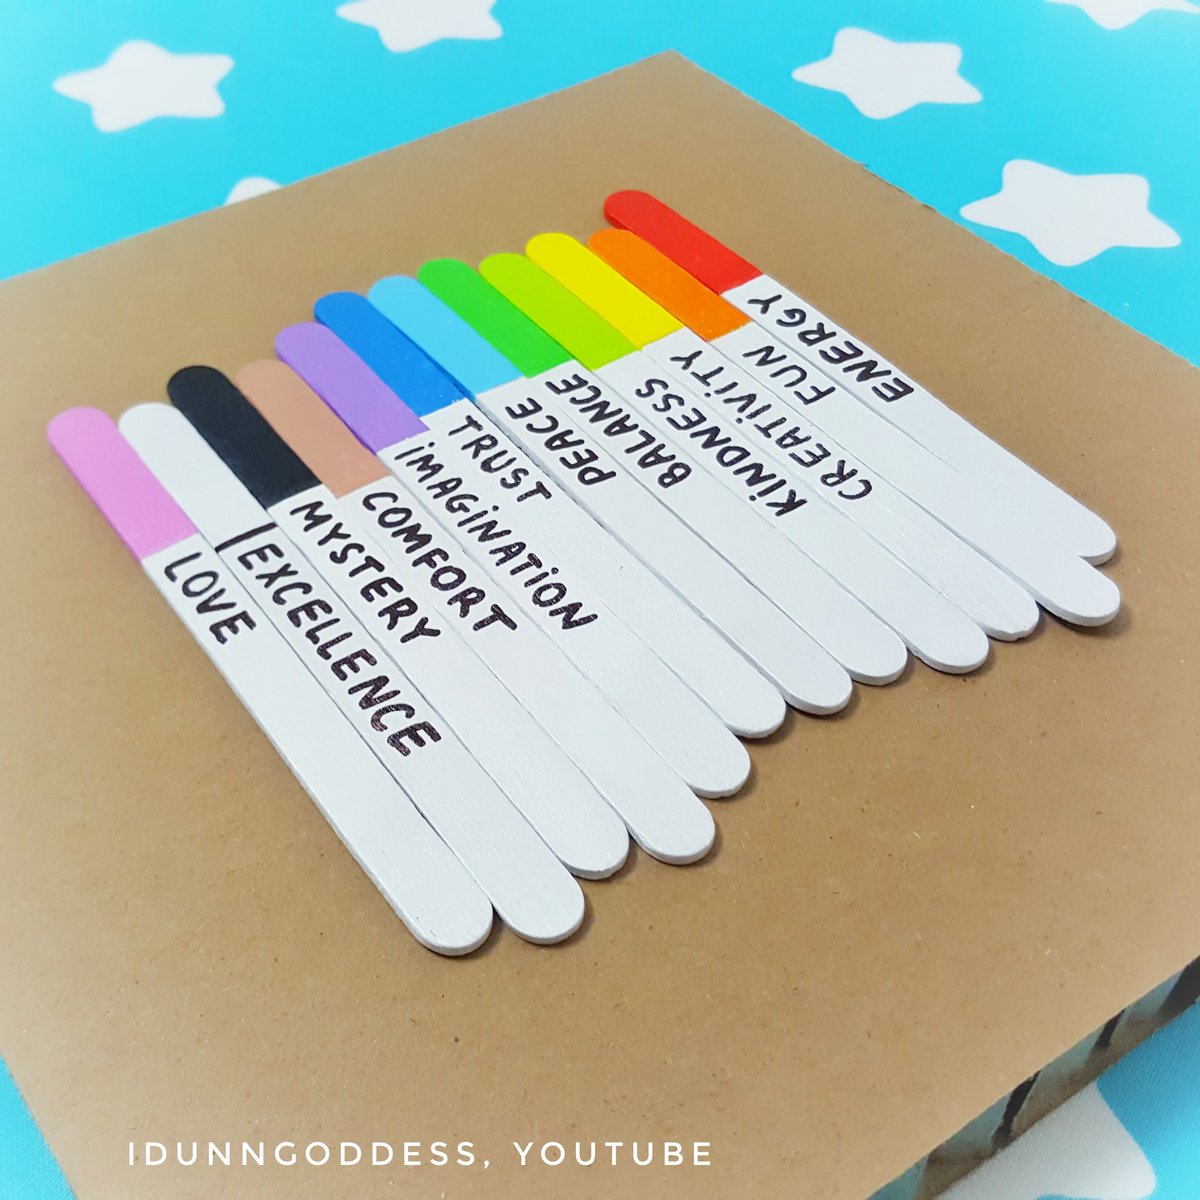 LOVE
EXCELLENCE
MYSTERY
COMFORT
iMAGiNATiON
TRUST
PEACE
BALANCE
KiNDNESS
CREATiViTY
FUN
ENERGY
IDUNNGODDESS, YOUTUBE